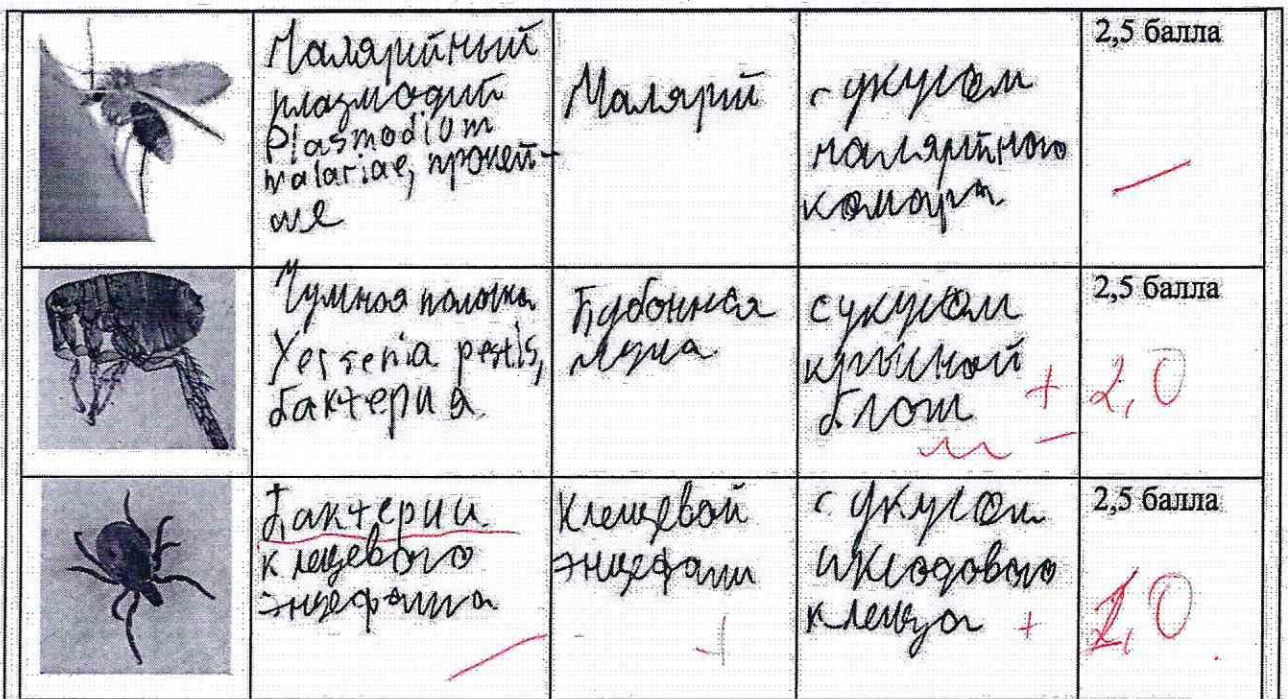 Малярийный
плазмодий
Plasmodium
malariae, протей-
ше
Малярий
с укусом
малярийного
комара
2,5 балла
Чумная палочка
Yersenia pestis,
бактерия
Бубонная
с укусом
крысиной
блох
+
2,5 балла
2,0
Бактерии
клещевого
энцефалита
Клещевой
энцефали
+
с укусом
иксодового
клеща +
2,5 балла
1,0